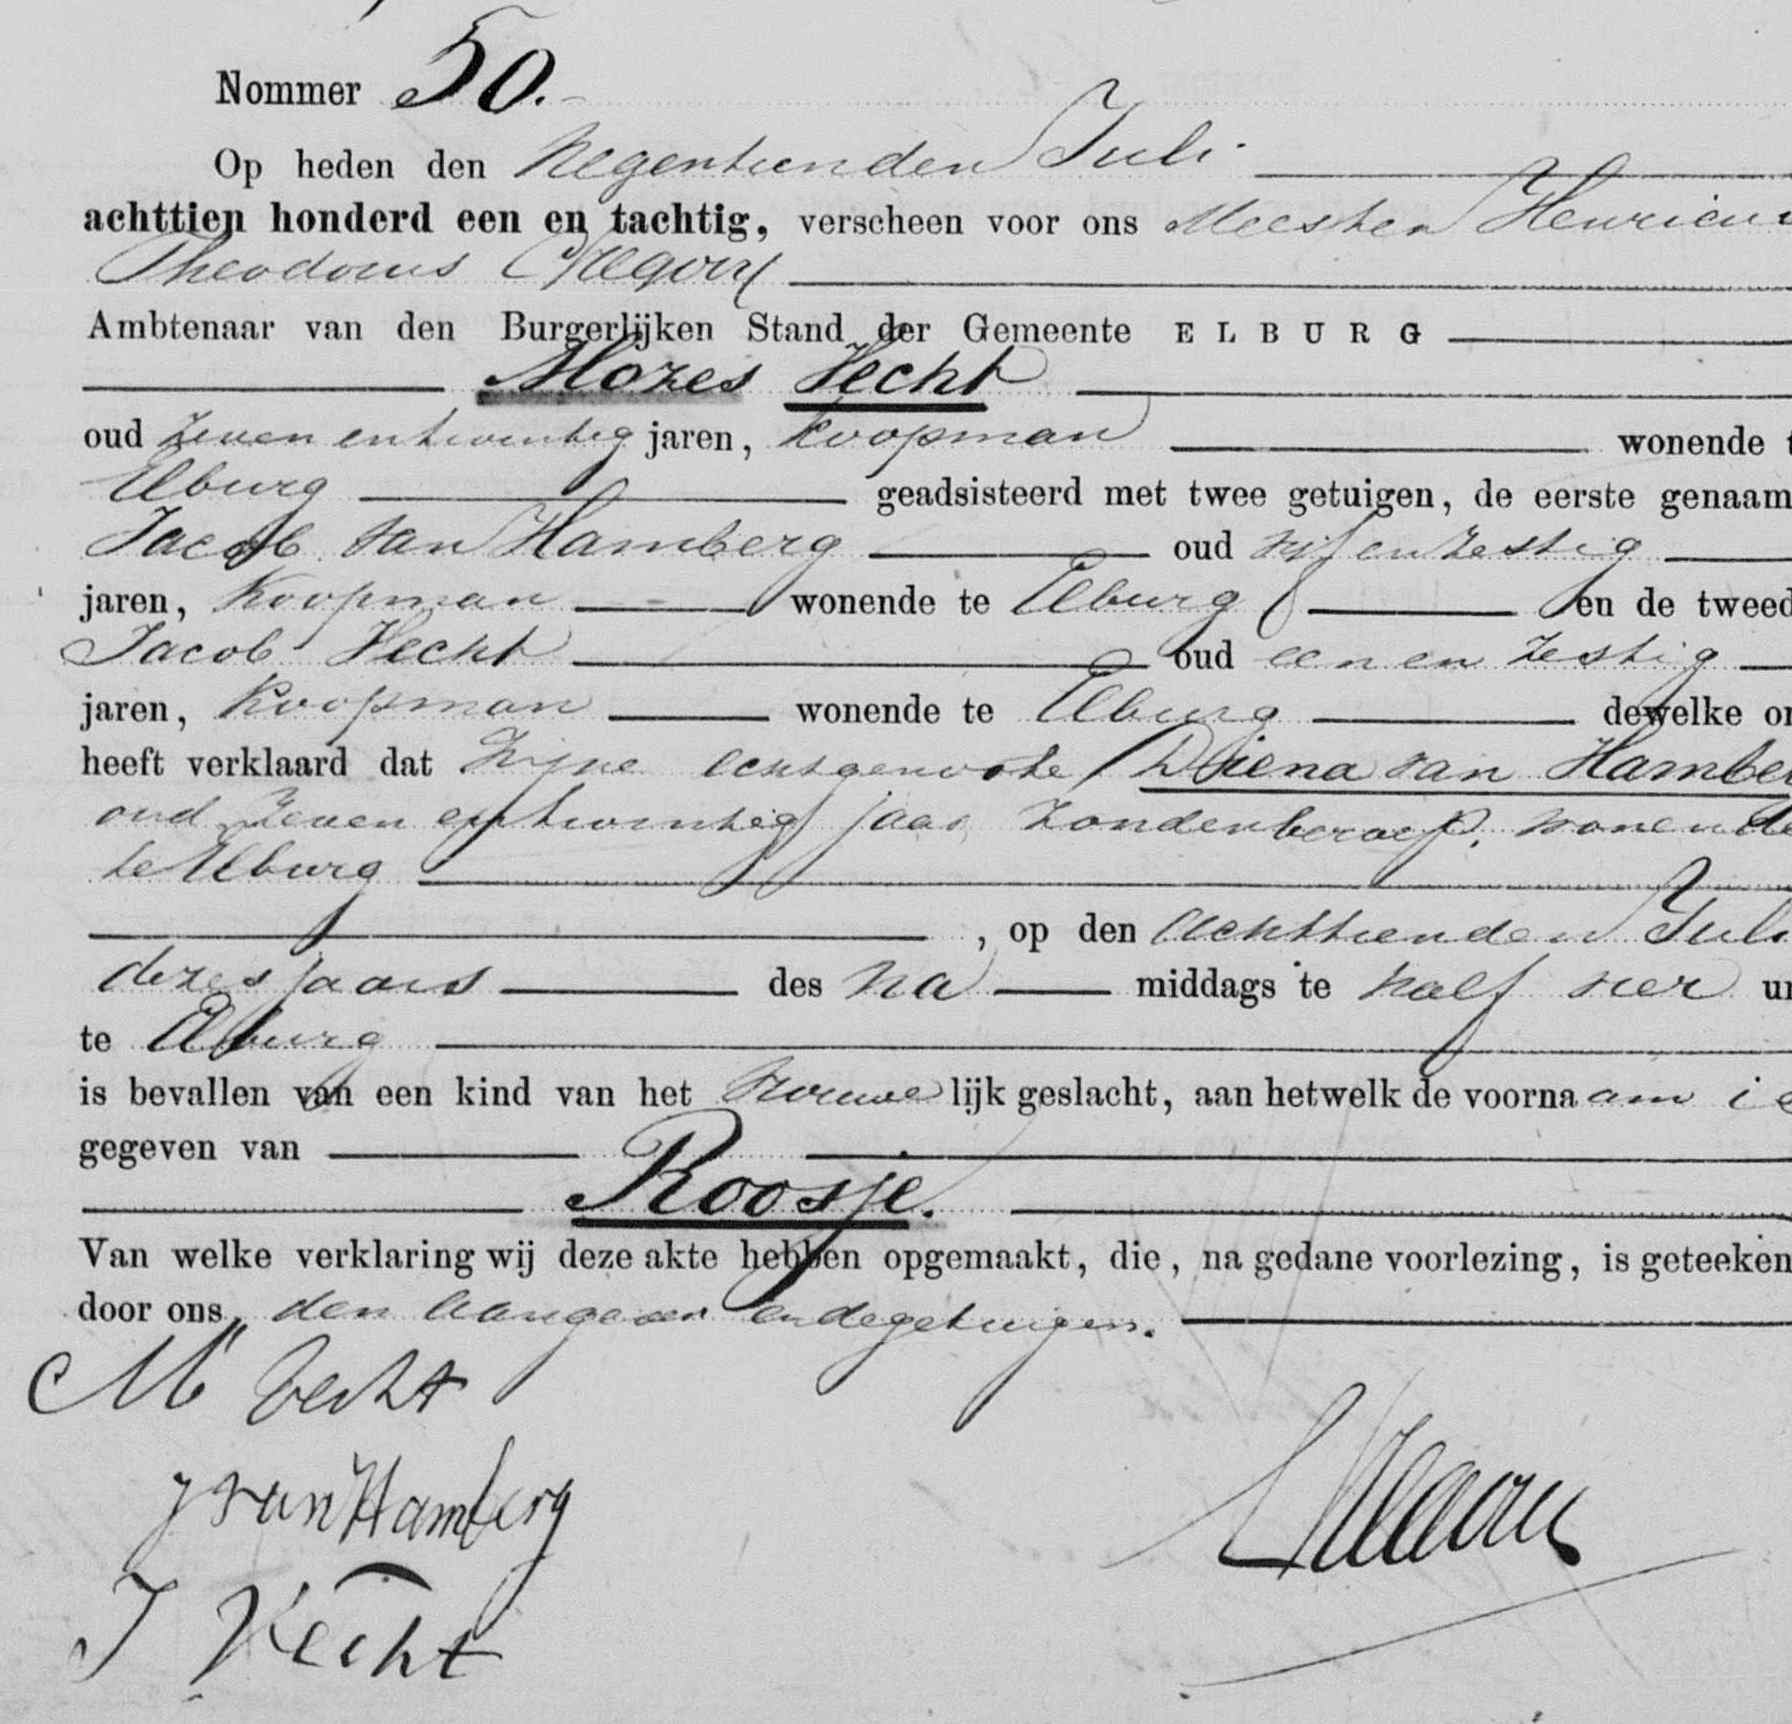 Nommer 50.
Op heden den Negentienden Juli
achttien honderd een en tachtig, verscheen voor ons Meester Henricus
Theodorus
Ambtenaar van den Burgerlijken Stand der Gemeente ELBURG
Mozes Hecht
oud zeven en twintig jaren, koopman wonende t
Elburg geadsisteerd met twee getuigen, de eerste genaam
Jacob van Hamberg oud vijf en zestig
jaren, Koopman wonende te Elburg en de tweed
Jacob Hecht oud een en zestig
jaren, Koopman wonende te Elburg dewelke on
heeft verklaard dat zijne echtgenoote Diena van Hamber
oud zeven en twintig jaar, zonder beroep, wonende
te Elburg
, op den Achttienden Juli
dezes jaars des na middags te half vier uu
te Elburg
is bevallen van een kind van het vrouwelijk geslacht, aan hetwelk de voornaam is
gegeven van
Roosje.
Van welke verklaring wij deze akte hebben opgemaakt, die, na gedane voorlezing, is geteeken
door ons, den aangever en de getuigen.
M Hecht
J van Hamberg
J Hecht